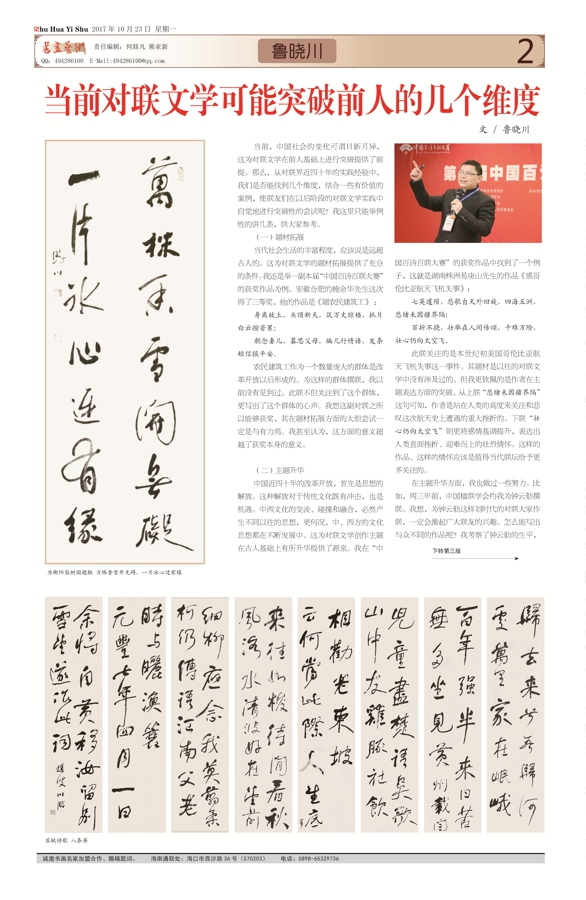 Shu Hua Yi Shu 2017年10月23日 星期一
书画艺术
责任编辑:何鼓凡 熊亚新
QQ:494286100 E-Mail:494286100@qq.com
鲁晓川
2
当前对联文学可能突破前人的几个维度
文 / 鲁晓川
萬株香雪開無礙
一片冰心進有緣
为衡阳梨树园题联 万株香雪开无碍,一片冰心进有缘
当前,中国社会的变化可谓日新月异,
这为对联文学在前人基础上进行突破提供了前
提。那么,从对联界近四十年的实践经验中,
我们是否能找到几个维度,结合一些有价值的
案例,使联友们在以后阶段的对联文学实践中
自觉地进行突破性的尝试呢?我这里只能举例
性的讲几条,供大家参考。
(一)题材拓展
当代社会生活的丰富程度,应该说是远超
古人的。这为对联文学的题材拓展提供了充分
的条件。我还是举一副本届“中国百诗百联大赛”
的获奖作品为例。安徽合肥的鲍余华先生这次
得了三等奖,他的作品是《题农民建筑工》:
身离故土,头顶新天,筑万丈琼楼,抓片
白云揩苦累;
朝念妻儿,暮思父母,编几行情语,发条
短信报平安。
农民建筑工作为一个数量庞大的群体是改
革开放以后形成的。为这样的群体撰联,我以
前没有见到过。此联不但关注到了这个群体,
更写出了这个群体的心声。我想这副对联之所
以能够获奖,其在题材拓展方面的大胆尝试一
定是与有力焉。我甚至认为,这方面的意义超
越了获奖本身的意义。
(二)主题升华
中国近四十年的改革开放,首先是思想的
解放。这种解放对于传统文化既有冲击,也是
机遇。中西文化的交流、碰撞和融合,必然产
生不同以往的思想,更何况,中、西方的文化
思想都在不断发展中。这为对联文学创作主题
在古人基础上有所升华提供了源泉。我在“中
国百诗百联大赛”的获奖作品中找到了一个例
子,这就是湖南株洲易庚山先生的作品《感哥
伦比亚航天飞机失事》:
七英遽陨,悲歌自天外回旋,四海五洲,
思绪永因疆界隔;
百折不挠,壮举在人间传颂,千难万险,
壮心仍向太空飞。
此联关注的是本世纪初美国哥伦比亚航
天飞机失事这一事件。其题材是以往的对联文
学中没有涉及过的。但我更钦佩的是作者在主
题表达方面的突破。从上联“思绪永因疆界隔”
这句可知,作者是站在人类的高度来关注和悲
叹这次航天史上遭遇的重大挫折的。下联“壮
心仍向太空飞”则更将感情基调提升,表达出
人类直面挫折、迎难而上的壮烈情怀。这样的
作品、这样的情怀应该是值得当代联坛给予更
多关注的。
在主题升华方面,我也做过一些努力。比
如,两三年前,中国楹联学会约我为钟云舫撰
联。我想,为钟云舫这样划时代的对联大家作
联,一定会激起广大联友的兴趣。怎么能写出
与众不同的作品呢?我考察了钟云舫的生平,
下转第三版
歸去來兮吾歸何
處萬里家在岷峨
百年強半來日苦
無多坐見黃州載閏
兒童盡楚語吳歌
山中友雞豚社飲
相勸老東坡
云何當此際人生底
來往如梭待閒看秋
風洛水清波好在堂前
細柳應念我莫翦柔
柯仍傳語江南父老
時與曬漁蓑
元豐七年四月一日
余將自黃移汝留別
雪堂遂作此詞
苏轼诗歌 八条屏
诚邀书画名家加盟合作、赐稿题词。 海南通联处:海口市西沙路36号(570203) 电话:0898-65329736